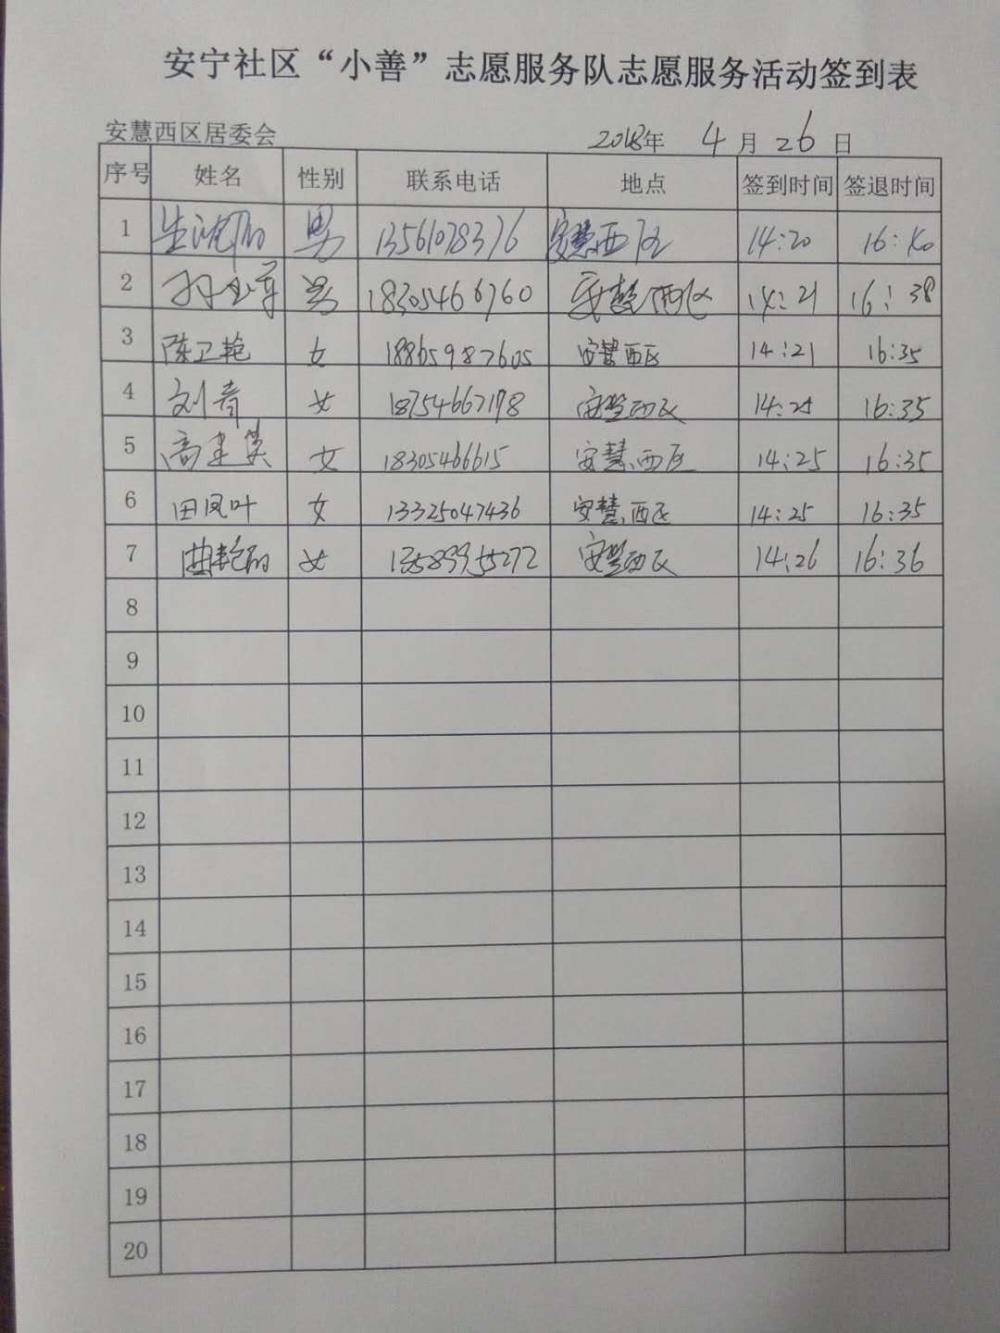 安宁社区“小善”志愿服务队志愿服务活动签到表
安慧西区居委会 2018年 4 月 26 日
序号 姓名 性别 联系电话 地点 签到时间 签退时间
1 男 安慧西区 14:20 16:40
2 男 18305466760 安慧西区 14:21 16:38
3 陈卫艳 女 18865987605 安慧西区 14:21 16:35
4 刘青 女 18754667178 安慧西区 14:25 16:35
5 高建英 女 18305466615 安慧西区 14:25 16:35
6 田凤叶 女 13325047436 安慧西区 14:25 16:35
7 曲艳丽 女 安慧西区 14:26 16:36
8
9
10
11
12
13
14
15
16
17
18
19
20